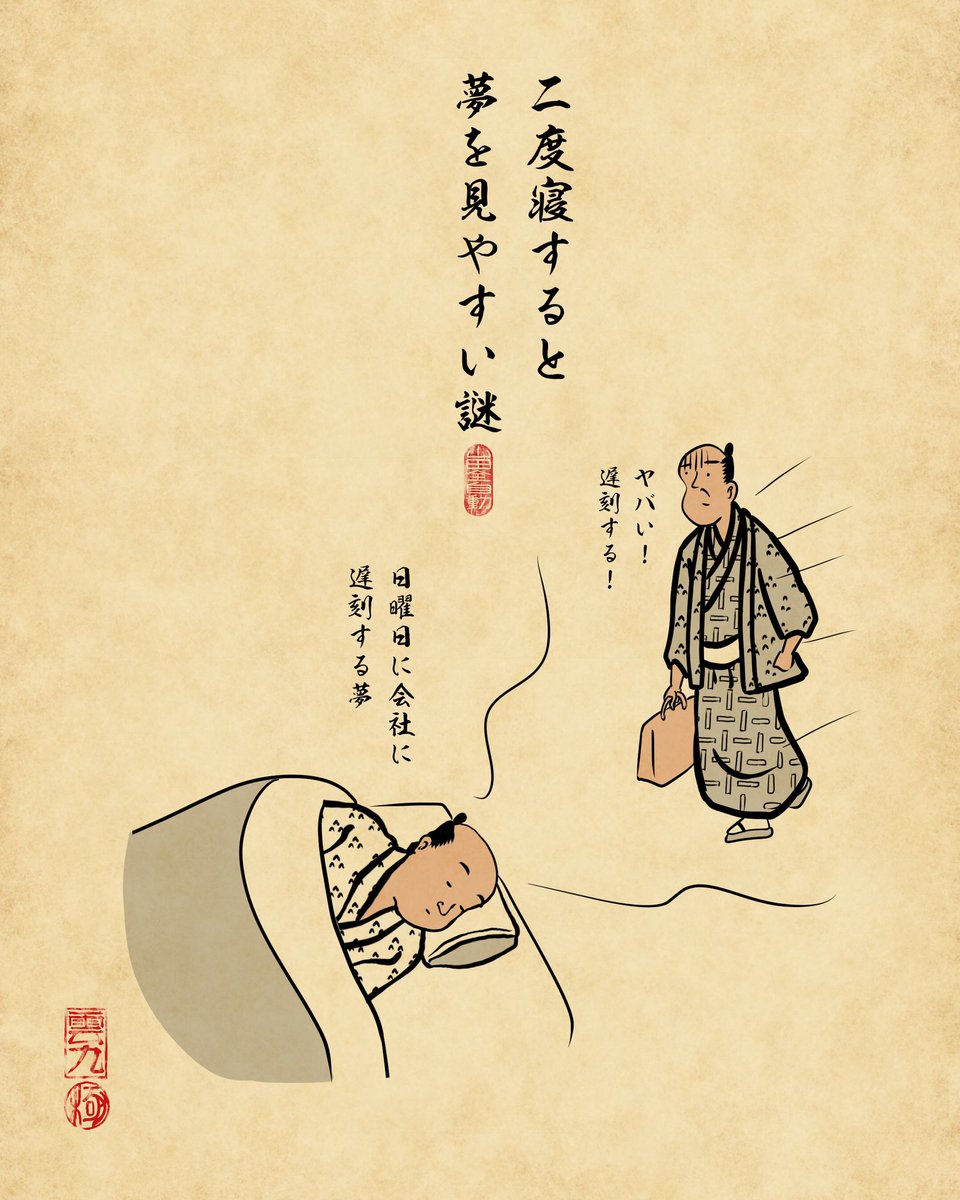 二度寝すると
夢を見やすい謎
ヤバい！
遅刻する！
日曜日に会社に
遅刻する夢